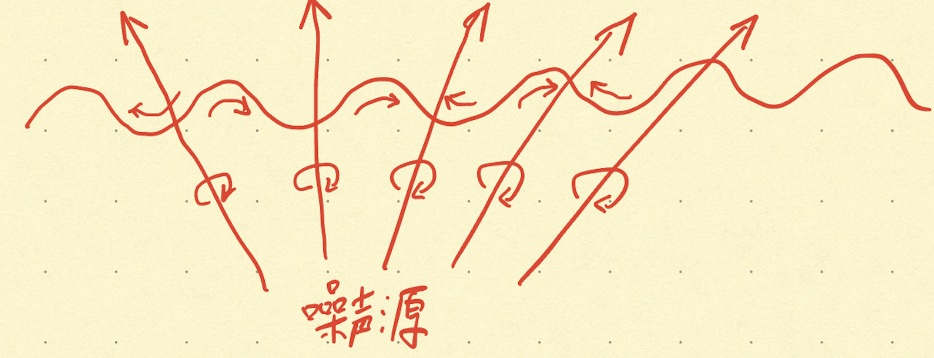 噪声源